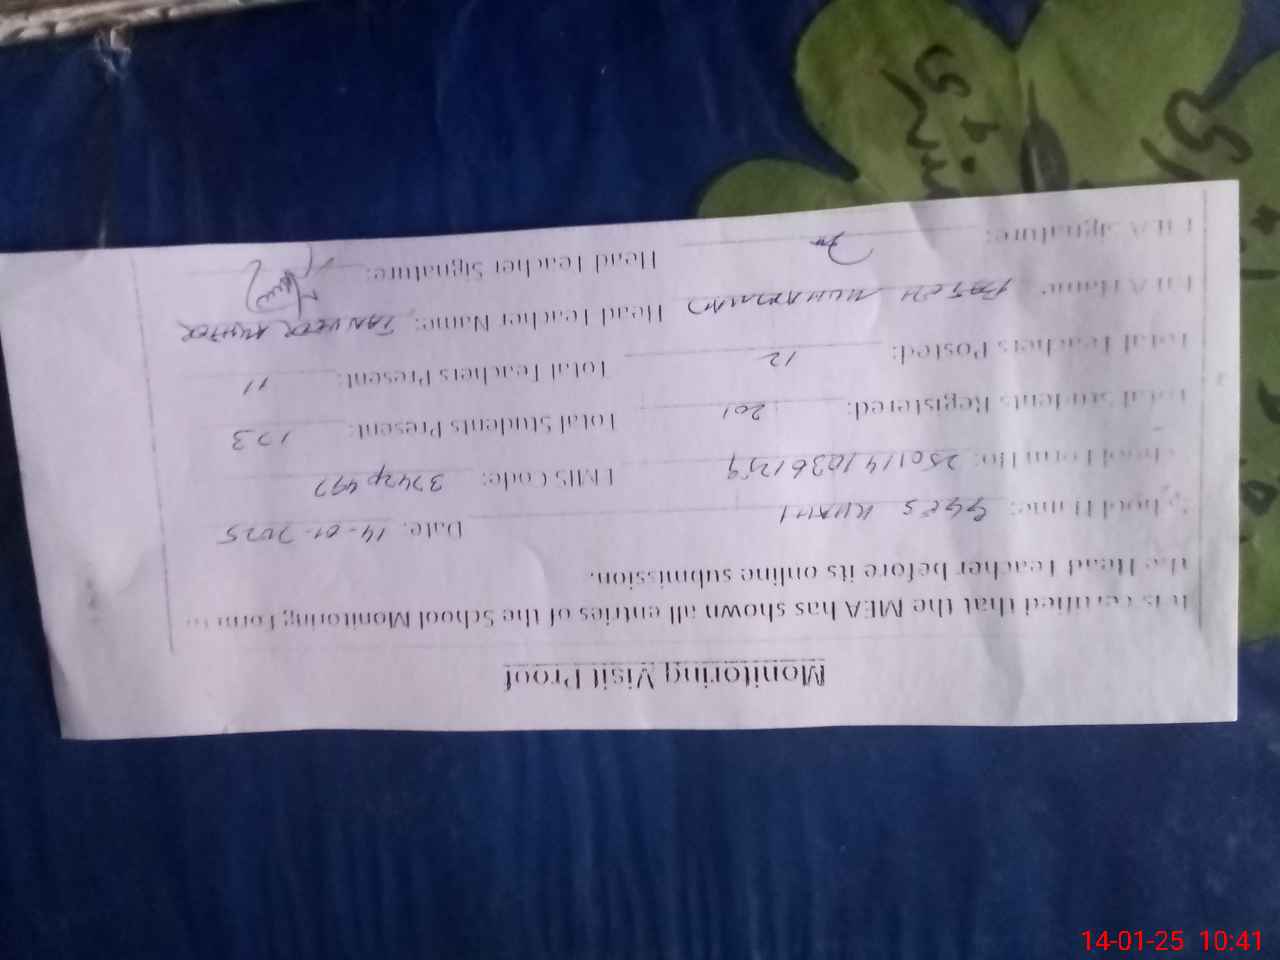 Monitoring Visit Proof
It is certified that the MEA has shown all entries of the School Monitoring Form to
the Head Teacher before its online submission.
School Name: GGES KHAHI Date: 14-01-2025
School Form No: 25011410361259 EMIS Code:
Total Students Registered: 201 Total Students Present: 173
Total Teachers Posted: 12 Total Teachers Present: 11
MEA Name: FATEH MUHAMMAD Head Teacher Name: TANVEER AKHTER
MEA Signature: Head Teacher Signature:
14-01-25 10:41